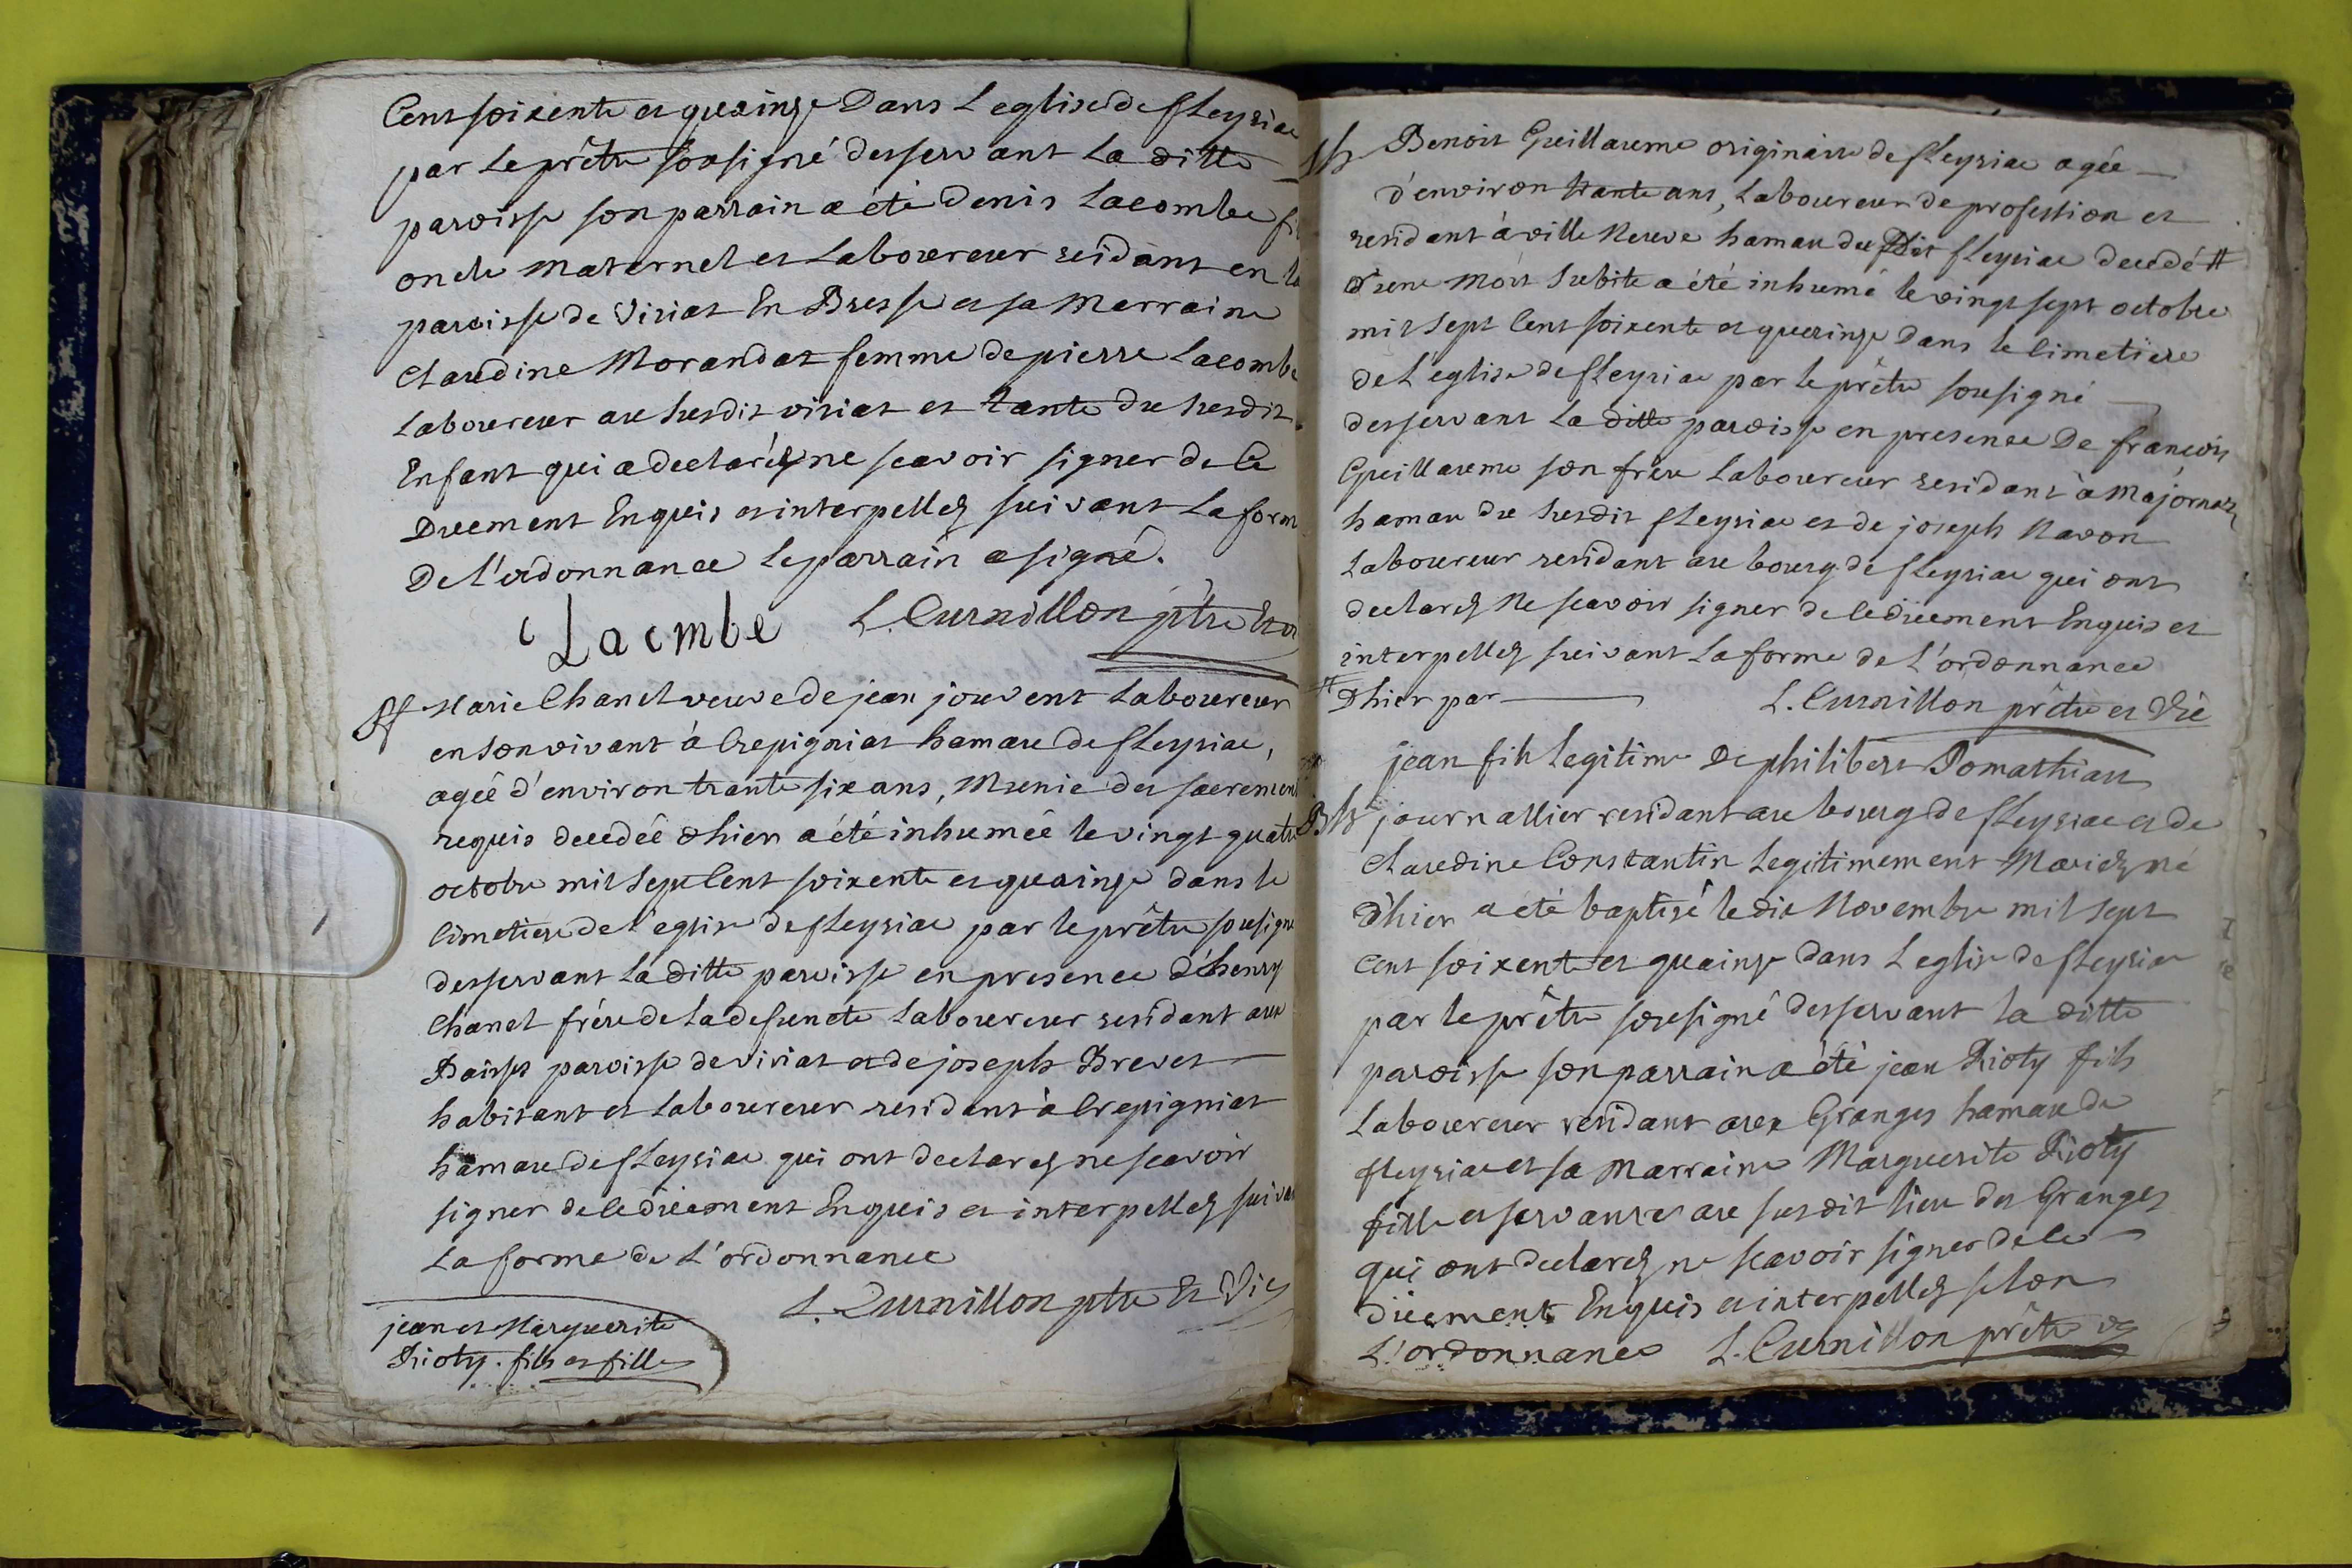 Cent soixente et quainze Dans L eglise de fleyriac
par le prêtre sousigné desservant La ditte
paroisse son parrain a été Denis Lacombe fi
oncle maternel et Laboureur residant en la
paroisse de Viriat En Bresse et sa Marraine
Claudine Morandat femme de pierre Lacombe
Laboureur au susdit viriat et tante du susdit
Enfant qui a declaréz ne scavoir signer de ce
Duement Enquis et interpellez suivant La form
De L'ordonnance le parrain a signé.
Lacmbe L. Curnillon ptre Et
Marie Chanel veuve de jean jouvent Laboureur
en son vivant à Crepigniat hamau de fleyriac,
ageé d'environ trante six ans, Munie des sacrement
requis decedéé dhier a été inhumée le vingt quatre
octobre mil sept Cent soixente et quainze dans le
Cimetiere de l'eglise de fleyriac par le prêtre sousigne
desservant La ditte paroisse en presence d'henry
Chanel frére de la defuncte Laboureur residant aux
Baisses paroisse de viriat et de joseph Brevet
habitant et Laboureur residant à Crepigniat
hamau de fleyriac qui ont declarez ne scavoir
signer de ce duement Enquis et interpellez suivan
La forme de L'ordonnance
L. Curnillon ptre Et Vic
jean et Marguerite
Rioty. fils et fille
Sh Benoit Guillaume originaire de fleyriac agée
d'environ trante ans, Laboureur de profession et
residant à ville Neuve hamau du dit fleyriac decedé #
d'une Mort subite a été inhumé le vingt sept octobre
mil sept Cent soixente et quainze Dans le Cimetiere
de L'eglise de fleyriac par le prêtre sousigné
desservant La ditte paroisse en presence De francois
Guillaume son frére Laboureur residant à Majornaz
hamau du susdit fleyriac et de joseph Navon
Laboureur residant au bourg de fleyriac qui ont
declarez Ne scavoir signer de ce duement Enquis et
interpellez suivant La forme de L'ordonnance
# Dhier par L. Curnillon prêtre et Vic
jean fils Legitime De philibert Pomathiau
Bh journallier residant au bourg de fleyriac et de
Claudine Constantin Legitimement Mariez né
d'hier a eté baptisé le dix Novembre mil sept
Cent soixente et quainze dans L eglise de fleyriac
par le prêtre sousigné desservant la ditte
paroisse son parrain a été jean Rioty fils
Laboureur residant aux Granges hamau de
fleyriac et sa Marraine Marguerite Rioty
fille et servante au susdit lieu des Granges
qui ont declarez ne scavoir signer de ce
duement Enquis et interpellez selon
L'ordonnance L. Curnillon prêtre